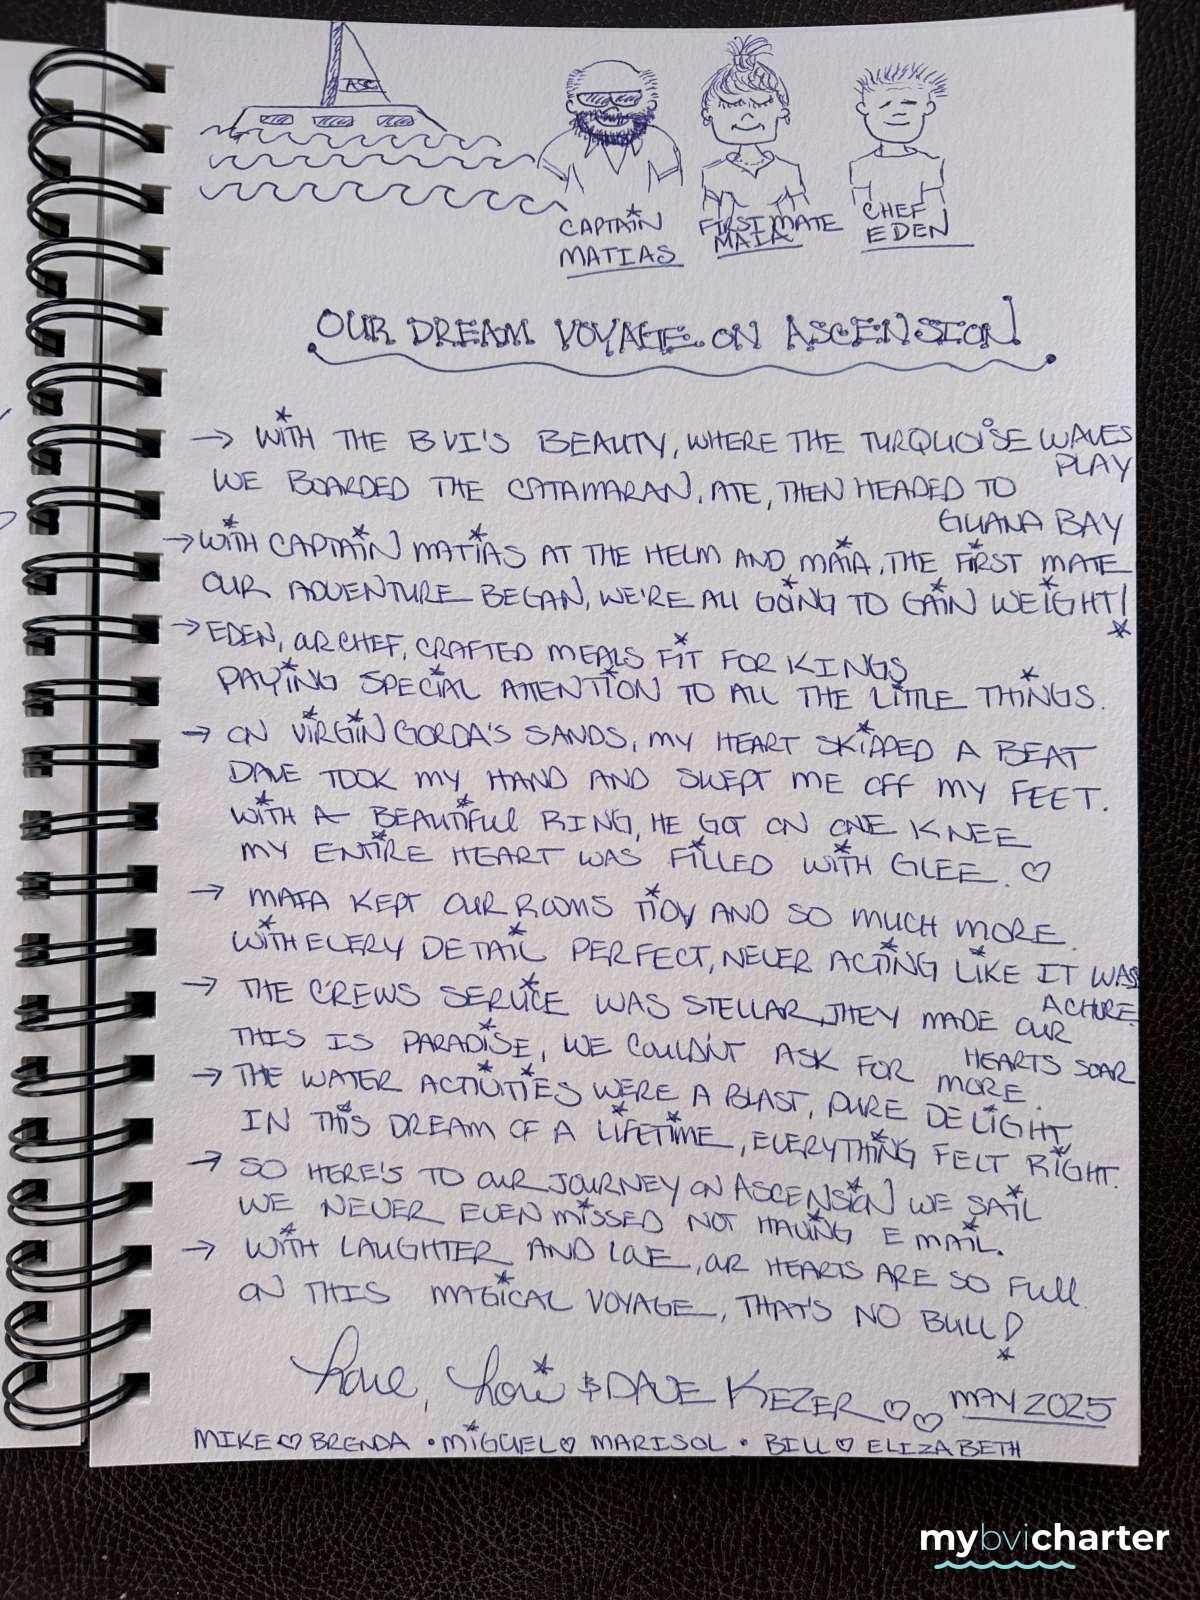 ASC
CAPTAIN
MATIAS
FIRST MATE
MAIA
CHEF
EDEN
OUR DREAM VOYAGE ON ASCENSION!
→ WITH THE BVI'S BEAUTY, WHERE THE TURQUOISE WAVES PLAY
WE BOARDED THE CATAMARAN, ATE, THEN HEADED TO GUANA BAY
→ WITH CAPTAIN MATIAS AT THE HELM AND MAIA, THE FIRST MATE
OUR ADVENTURE BEGAN, WE'RE All GOING TO GAIN WEIGHT!
→ EDEN, OUR CHEF, CRAFTED MEALS FIT FOR KINGS
PAYING SPECIAL ATTENTION TO All THE LITTLE THINGS.
→ ON VIRGIN GORDA'S SANDS, MY HEART SKIPPED A BEAT
DAVE TOOK MY HAND AND SWEPT ME OFF MY FEET.
WITH A BEAUTIFUL RING, HE GOT ON ONE KNEE
MY ENTIRE HEART WAS FILLED WITH GLEE. ♡
→ MAIA KEPT OUR ROOMS TIDY AND SO MUCH MORE.
WITH EVERY DETAIL PERFECT, NEVER ACTING LIKE IT WAS A CHORE.
→ THE CREWS SERVICE WAS STELLAR, THEY MADE OUR HEARTS SOAR
THIS IS PARADISE, WE COULDN'T ASK FOR MORE.
→ THE WATER ACTIVITIES WERE A BLAST, PURE DELIGHT
IN THIS DREAM OF A LIFETIME, EVERYTHING FELT RIGHT.
→ SO HERE'S TO OUR JOURNEY ON ASCENSION WE SAIL
WE NEVER EVEN MISSED NOT HAVING EMAIL.
→ WITH LAUGHTER AND LOVE, OUR HEARTS ARE SO FUll
ON THIS MAGICAL VOYAGE, THAT'S NO BULL!
Love, Lori & DAVE KEZER ♡♡ MAY 2025
MIKE ♡ BRENDA • MIGUEL ♡ MARISOL • BILL ♡ ELIZABETH
mybvicharter